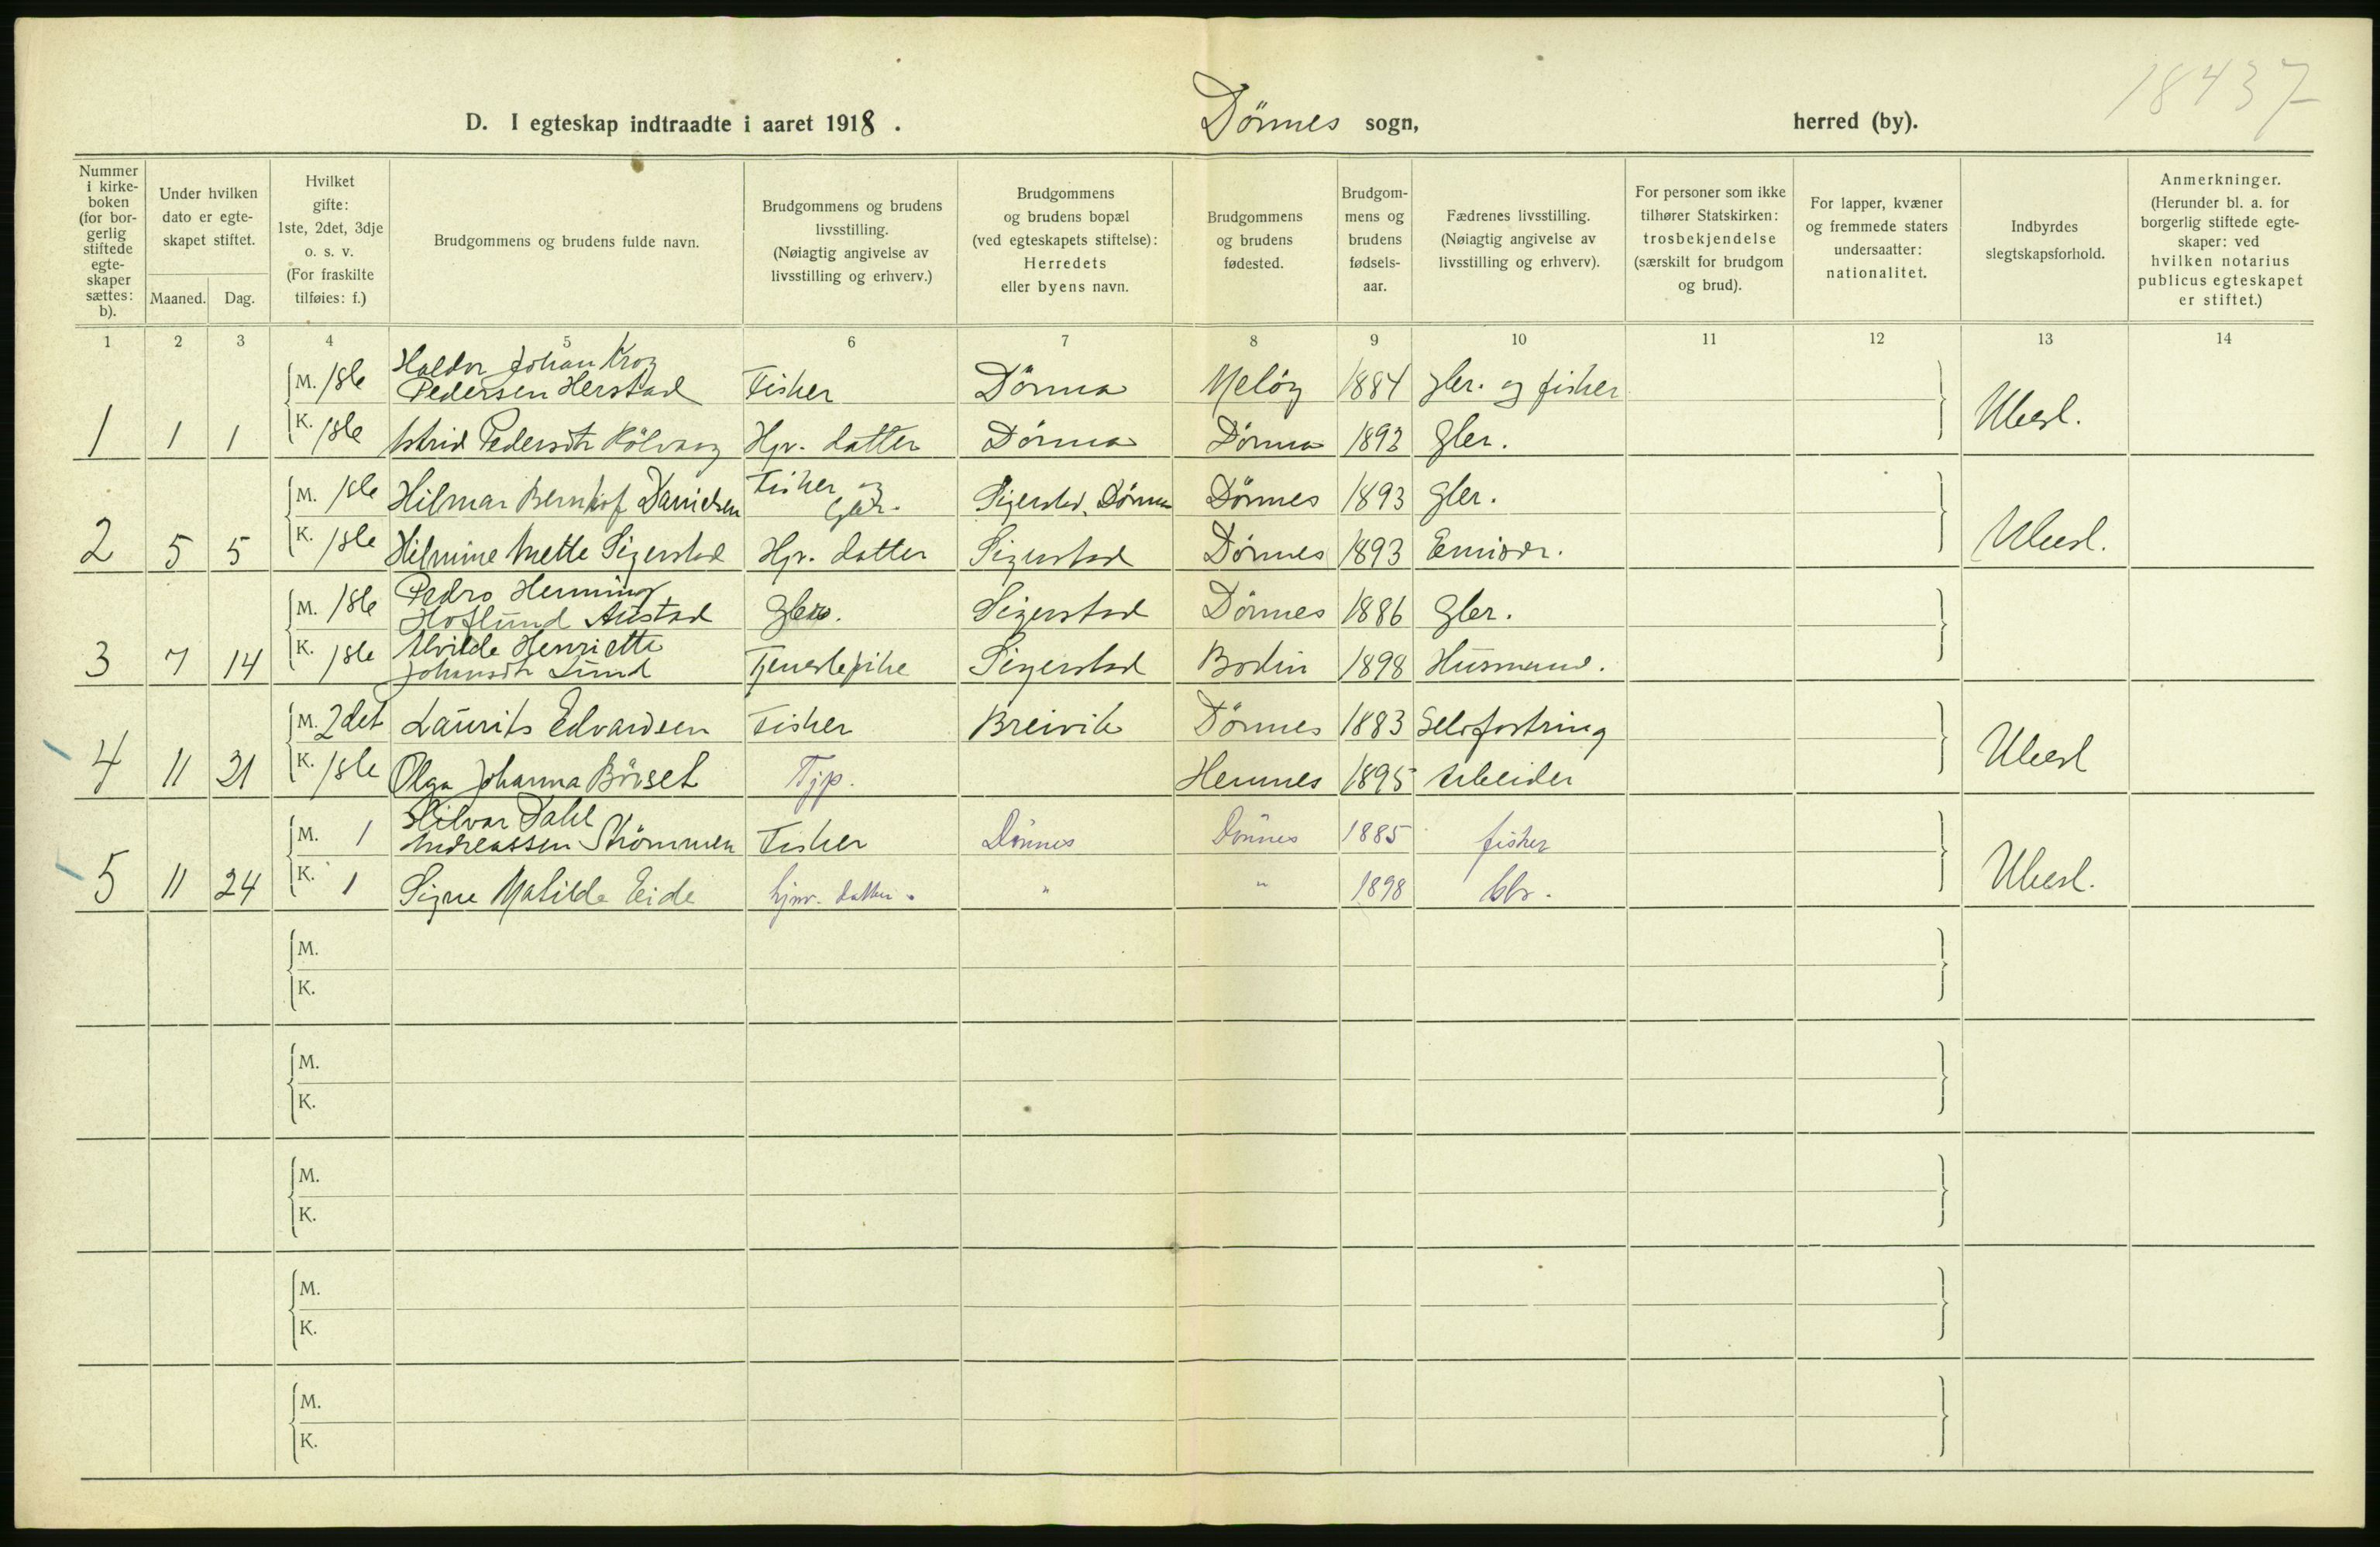 18437
D. I egteskap indtraadte i aaret 1918. Dönnes sogn, herred (by).
Nummer i kirkeboken (for borgerlig stiftede egteskaper sættes: b).
Under hvilken dato er egteskapet stiftet.
Maaned. Dag.
Hvilket gifte: 1ste, 2det, 3dje o. s. v. (For fraskilte tilføies: f.)
Brudgommens og brudens fulde navn.
Brudgommens og brudens livsstilling. (Nøiagtig angivelse av livsstilling og erhverv.)
Brudgommens og brudens bopæl (ved egteskapets stiftelse): Herredets eller byens navn.
Brudgommens og brudens fødested.
Brudgommens og brudens fødselsaar.
Fædrenes livsstilling. (Nøiagtig angivelse av livsstilling og erhverv).
For personer som ikke tilhører Statskirken: trosbekjendelse (særskilt for brudgom og brud).
For lapper, kvæner og fremmede staters undersaatter: nationalitet.
Indbyrdes slegtskapsforhold.
Anmerkninger. (Herunder bl. a. for borgerlig stiftede egteskaper: ved hvilken notarius publicus egteskapet er stiftet.)
1 2 3 4 5 6 7 8 9 10 11 12 13 14
M. 1ste Haldor Johan Krog Pedersen Herstad Fisker Dönna Meløy 1884 gbr. og fisker
1 1 1 K. 1ste Astrid Pedersdtr Kölvang Hjv. datter Dönna Dönna 1892 gbr. Ubesl.
M. 1ste Hilmar Bernhof Danielsen Fisker og gbr. Sigerstad, Dönnes Dönnes 1893 gbr.
2 5 5 K. 1ste Hilmine Mette Sigerstad Hjv. datter Sigerstad Dönnes 1893 Emisær. Ubesl.
M. 1ste Pedro Henning Hoflund Austad gbr. Sigerstad Dönnes 1886 gbr.
3 7 14 K. 1ste Alvilde Henriette Johansdtr Lund Tjenestepike Sigerstad Bodin 1898 Husmand.
M. 2det Laurits Edvardsen Fisker Breivik Dönnes 1883 Selvfostring
4 11 21 K. 1ste Olga Johanna Börset Tjp. Hemnes 1895 Arbeider Ubesl
M. 1 Hilvar Dahl Andreassen Strömmen Fisker Dönnes Dönnes 1885 fisker
5 11 24 K. 1 Signe Matilde Eide hjv. datter. " " 1898 Gbr. Ubesl.
M.
K.
M.
K.
M.
K.
M.
K.
M.
K.